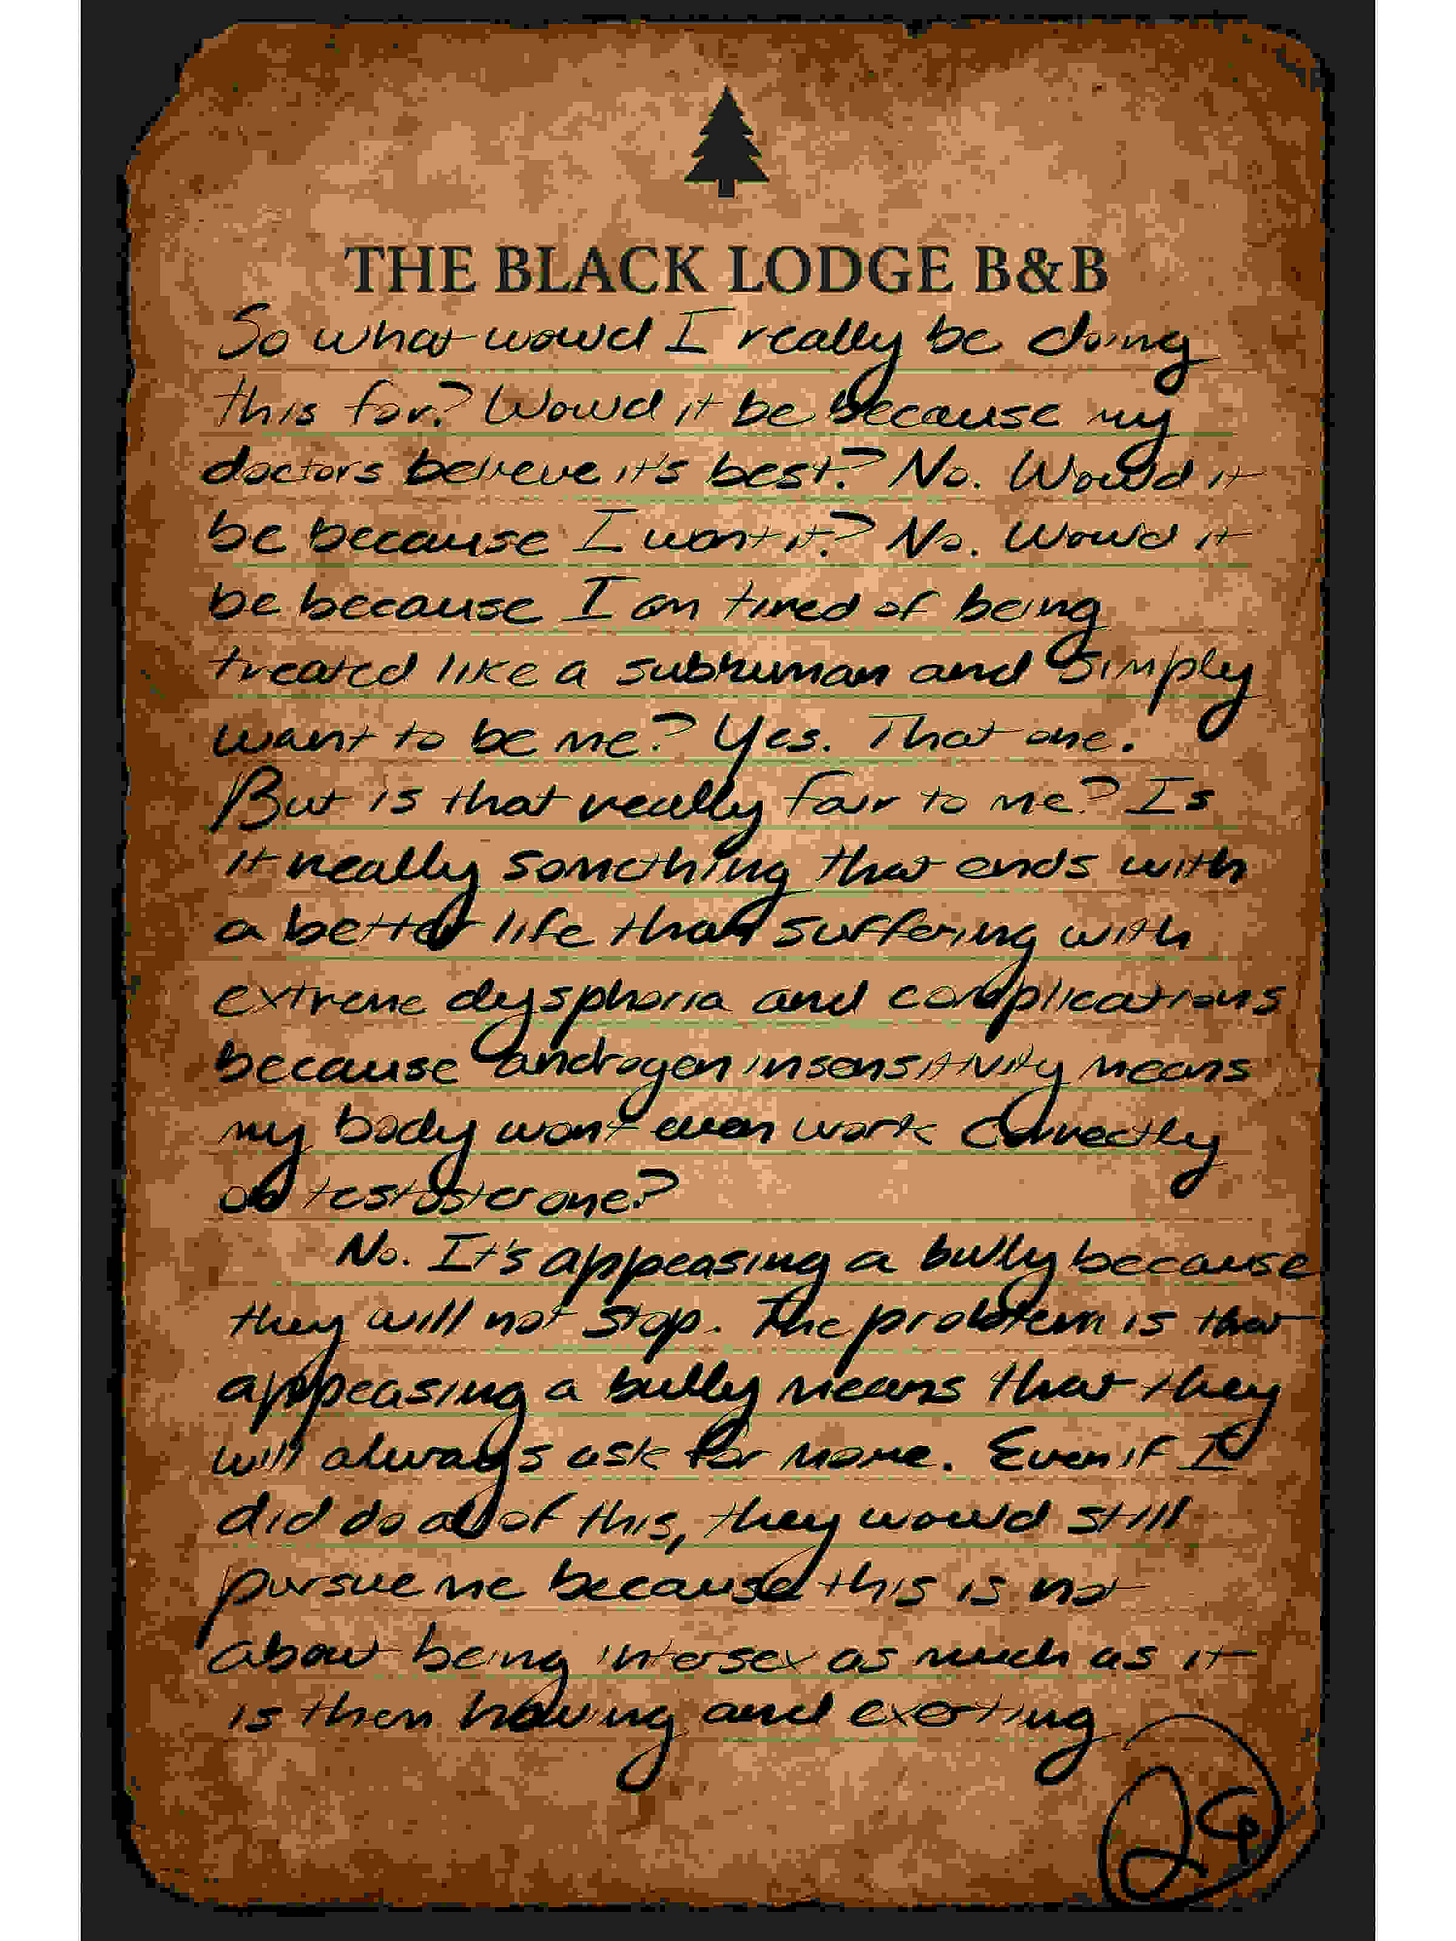 THE BLACK LODGE B&B
So what would I really be doing
this for? Would it be because my
doctors believe it's best? No. Would it
be because I want it? No. Would it
be because I am tired of being
treated like a subhuman and simply
want to be me? Yes. That one.
But is that really fair to me? Is
it really something that ends with
a better life than suffering with
extreme dysphoria and complications
because androgen insensitivity means
my body wont even work correctly
on testosterone?
No. It's appeasing a bully because
they will not stop. The problem is that
appeasing a bully means that they
will always ask for more. Even if I
did do all of this, they would still
pursue me because this is not
about being intersex as much as it
is them having and exerting